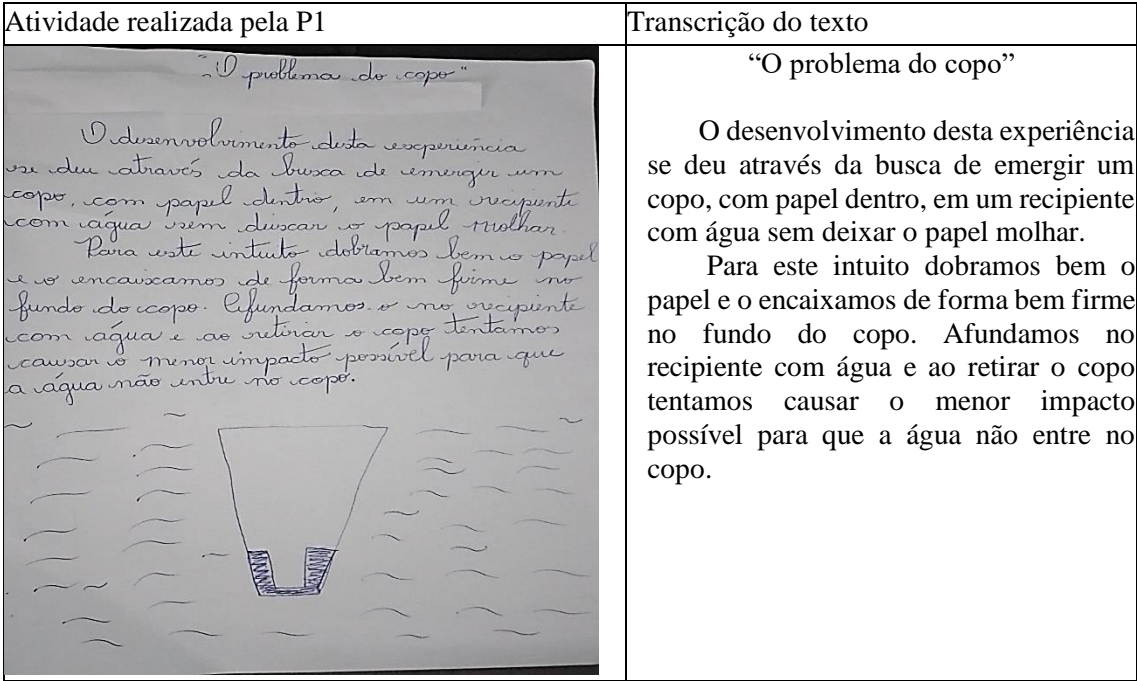 Atividade realizada pela P1
Transcrição do texto
"O problema do copo"
O desenvolvimento desta experiência
se deu através da busca de emergir um
copo, com papel dentro, em um recipiente
com água sem deixar o papel molhar.
Para este intuito dobramos bem o papel
e o encaixamos de forma bem firme no
fundo do copo. Afundamos o no recipiente
com água e ao retirar o copo tentamos
causar o menor impacto possível para que
a água não entre no copo.
“O problema do copo”
O desenvolvimento desta experiência
se deu através da busca de emergir um
copo, com papel dentro, em um recipiente
com água sem deixar o papel molhar.
Para este intuito dobramos bem o
papel e o encaixamos de forma bem firme
no fundo do copo. Afundamos no
recipiente com água e ao retirar o copo
tentamos causar o menor impacto
possível para que a água não entre no
copo.